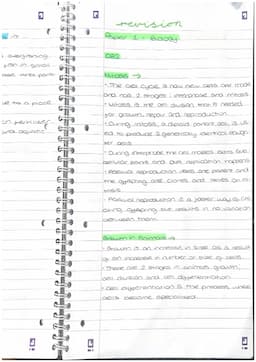 revision
Paper 1 - Biology
CB2
Mitosis →
• The cell cycle is how new cells are made
and has 2 stages: interphase and mitosis
• Mitosis is the cell division that is needed
for growth, repair and reproduction.
• During mitosis, a diploid parent cell is us-
ed to produce 2 genetically identical daugh-
ter cells.
• During interphase the cell makes extra sub-
cellular parts and DNA replication happens
• Asexual reproduction uses one parent and
the offspring are clones and relies on mi-
tosis.
• Asexual reproduction is a faster way of cre-
ating offspring but results in no variation
between them.
Growth in Animals →
• Growth is an increase in size as a result
of an increase in number or size of cells.
• There are 2 stages in animal growth,
cell division and cell differentiation.
• Cell differentiation is the process where
cells become specialised.